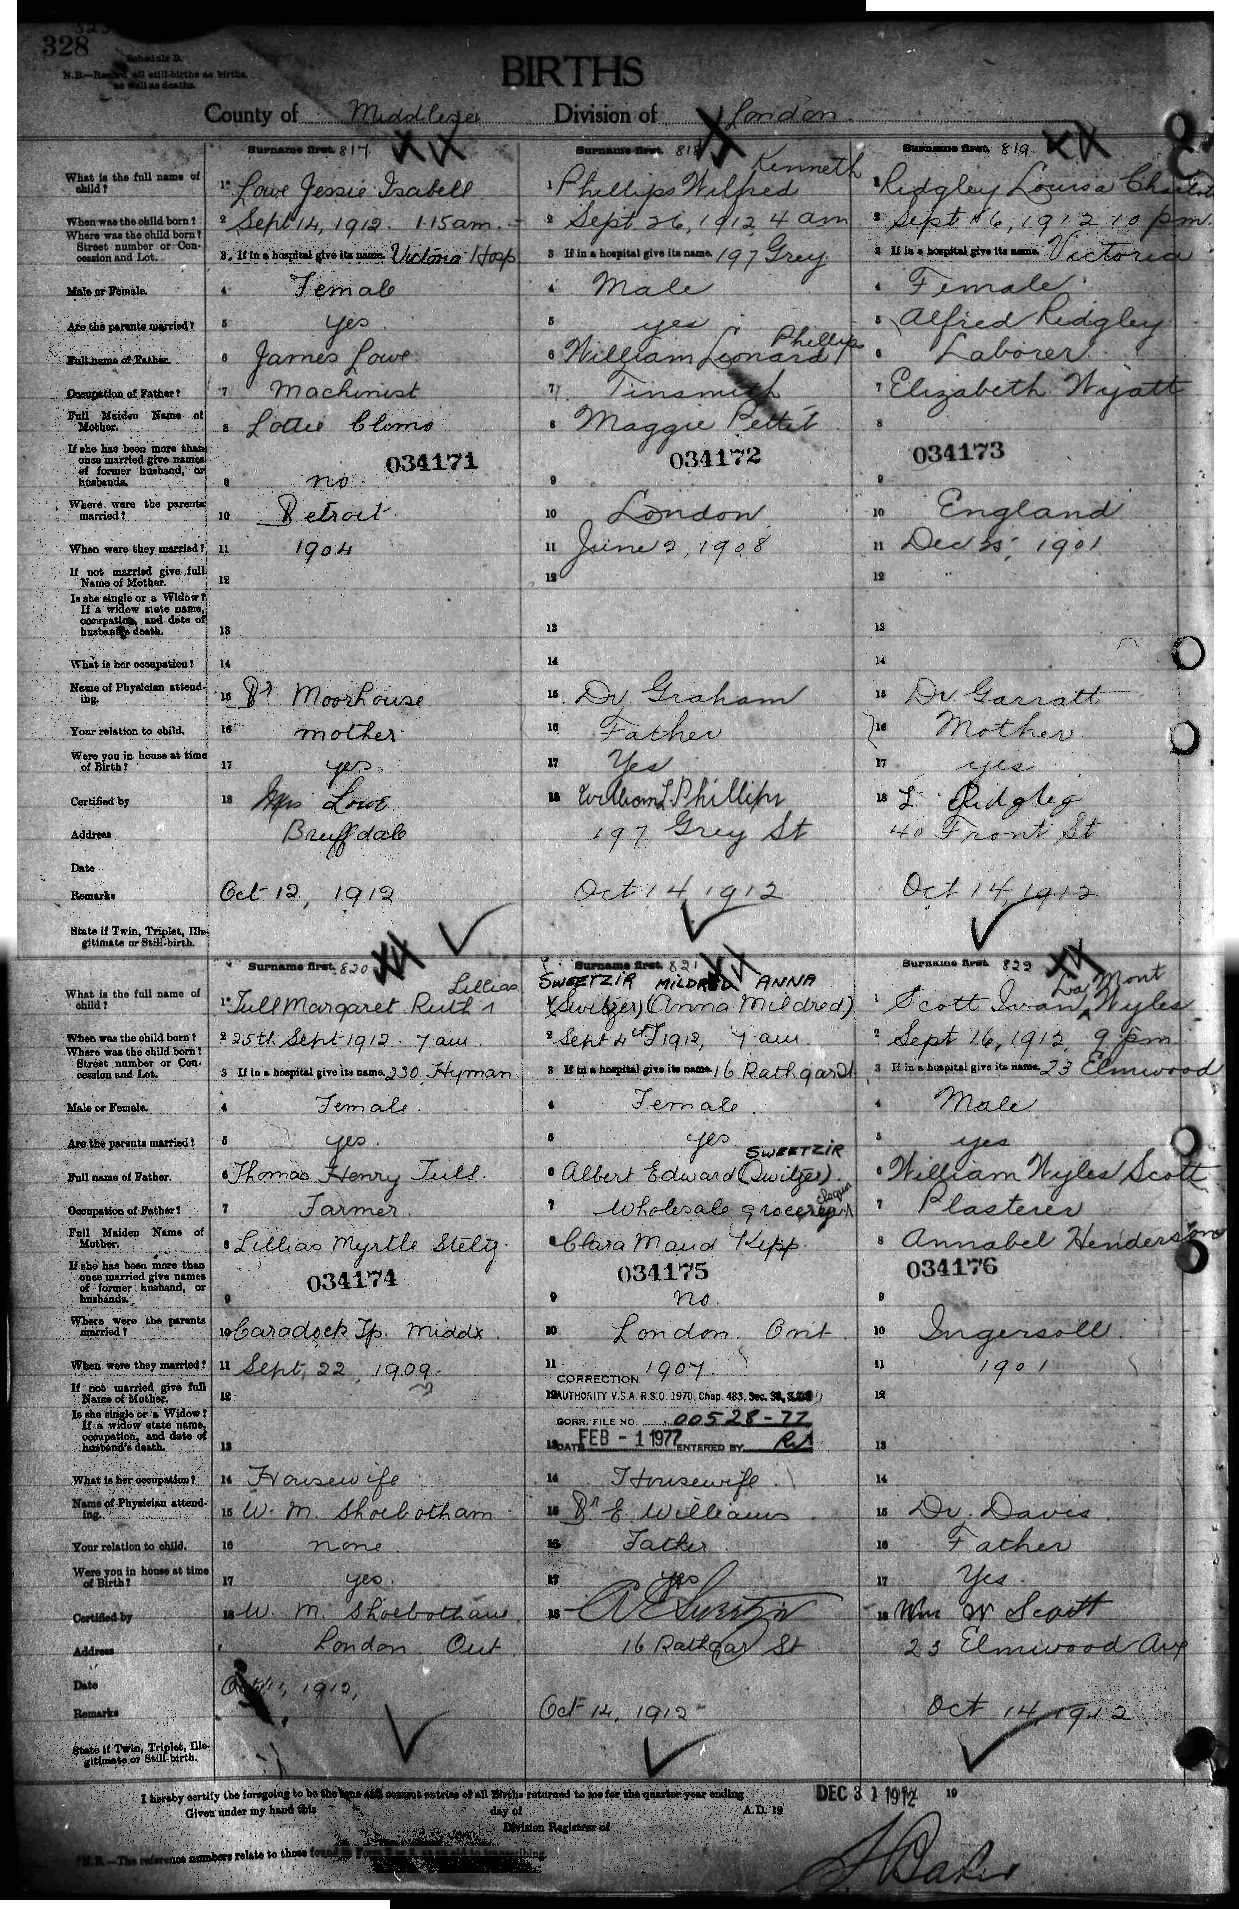 328
Schedule D.
N.B.—Record all still-births as births, as well as deaths.
BIRTHS
County of Middlesex Division of London
Surname first. 817 Surname first. 818 Surname first. 819
What is the full name of child? 1 Lowe Jessie Isabell 1 Phillips Wilfred Kenneth 1 Ridgley Louisa
When was the child born? 2 Sept 14, 1912. 1.15 am. 2 Sept 26, 1912 4 am 2 Sept 16, 1912 10 pm.
Where was the child born? Street number or Concession and Lot. 3. If in a hospital give its name. Victoria Hosp 3 If in a hospital give its name. 197 Grey 3 If in a hospital give its name. Victoria
Male or Female. 4 Female 4 Male 4 Female
Are the parents married? 5 yes 5 yes 5 Alfred Ridgley
Full name of Father. 6 James Lowe 6 William Leonard Phillips 6 Laborer
Occupation of Father? 7 Machinist 7 Tinsmith 7 Elizabeth Wyatt
Full Maiden Name of Mother. 8 Lottie 8 Maggie Pettit 8
034171 034172 034173
If she has been more than once married give names of former husband, or husbands. 9 no 9 9
Where were the parents married? 10 Detroit 10 London 10 England
When were they married? 11 1904 11 June 2, 1908 11 Dec 25, 1901
If not married give full Name of Mother. 12 12 12
Is she single or a Widow? If a widow state name, occupation, and date of husband's death. 13 13 13
What is her occupation? 14 14 14
Name of Physician attending. 15 Dr Moorhouse 15 Dr Graham 15 Dr Garratt
Your relation to child. 16 mother 16 Father 16 Mother
Were you in house at time of Birth? 17 yes 17 Yes 17 yes
Certified by 18 Mrs Lowe 18 William L Phillips 18 L Ridgley
Address 197 Grey St 40 Front St
Date
Remarks Oct 12, 1912 Oct 14, 1912 Oct 14, 1912
State if Twin, Triplet, Illegitimate or Still-birth.
Surname first. 820 Surname first. 821 Surname first. 822
SWEETZIR MILDRED ANNA
What is the full name of child? 1 Tull Margaret Ruth Lillias (Switzer) (Anna Mildred) 1 Scott Ivan La Mont Wyles
When was the child born? 2 25th Sept 1912. 7 am 2 Sept 4th 1912, 7 am 2 Sept 16, 1912, 9 pm
Where was the child born? Street number or Concession and Lot. 3 If in a hospital give its name. 230 Hyman 3 If in a hospital give its name. 16 Rathgar St 3 If in a hospital give its name. 23 Elmwood
Male or Female. 4 Female. 4 Female. 4 Male
Are the parents married? 5 yes. 5 yes 5 yes
Full name of Father. 6 Thomas Henry Tull. 6 Albert Edward (Switzer) SWEETZIR 6 William Wyles Scott
Occupation of Father? 7 Farmer. 7 Wholesale grocery 7 Plasterer
Full Maiden Name of Mother. 8 Lillias Myrtle 8 Clara Maud Kipp 8 Annabel Henderson
034174 034175 034176
If she has been more than once married give names of former husband, or husbands. 9 9 no. 9
Where were the parents married? 10 Caradock Tp. Middx 10 London Ont 10 Ingersoll
When were they married? 11 Sept, 22, 1909. 11 1907. 11 1901
CORRECTION
If not married give full Name of Mother. 12 12 AUTHORITY V.S.A. R.S.O. 1970, Chap. 483, Sec. 12
CORR. FILE NO. 00528-77
Is she single or a Widow? If a widow state name, occupation, and date of husband's death. 13 13 DATE FEB - 1 1977 ENTERED BY 13
What is her occupation? 14 Housewife 14 Housewife 14
Name of Physician attending. 15 W. M. Shoebotham 15 Dr E. Williams 15 Dr. Davis
Your relation to child. 16 none. 16 Father 16 Father
Were you in house at time of Birth? 17 yes. 17 yes 17 Yes.
Certified by 18 W. M. Shoebotham 18 18 Wm W Scott
Address London Ont 16 Rathgar St 23 Elmwood Ave
Date Oct 11, 1912,
Remarks Oct 12, 1912 Oct 14, 1912
State if Twin, Triplet, Illegitimate or Still-birth.
I hereby certify the foregoing to be the true and correct entries of all Births returned to me for the quarter year ending DEC 31 1912 19
Given under my hand this day of A.D. 19
Division Registrar of
N.B.—The reference numbers relate to those found in Form